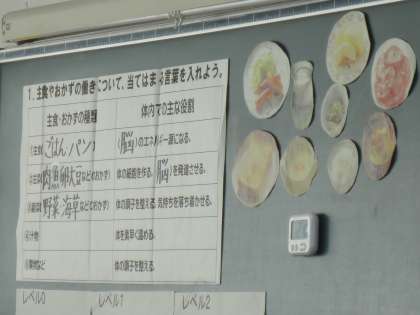 1.主食やおかずの働きについて、当てはまる言葉を入れよう。
主食・おかずの種類
体内での主な役割
ごはん/パン
(脳)のエネルギー源になる。
肉 魚 卵 大豆などのおかず
体の組織を作る。(脳)を発達させる。
野菜・海草などのおかず
体の調子を整える。気持ちを落ち着かせる。
④汁物
体を素早く温める。
体の調子を整える。
レベル0
レベル1
レベル2